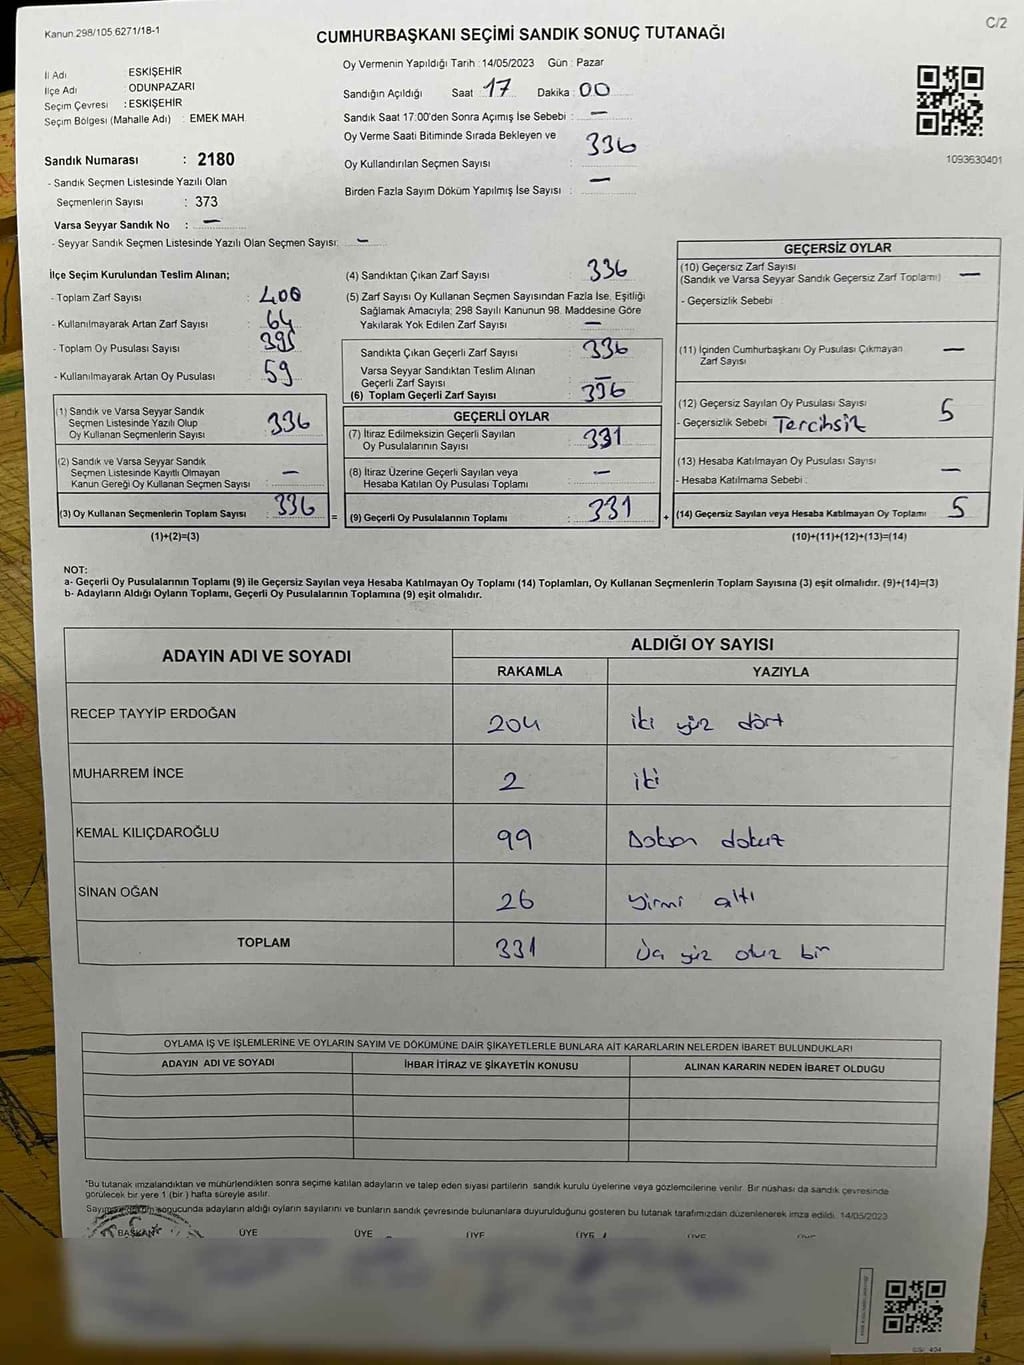 Kanun 298/105,6271/18-1
C/2
CUMHURBAŞKANI SEÇİMİ SANDIK SONUÇ TUTANAĞI
İl Adı : ESKİŞEHİR
İlçe Adı : ODUNPAZARI
Seçim Çevresi : ESKİŞEHİR
Seçim Bölgesi (Mahalle Adı) : EMEK MAH.
Sandık Numarası : 2180
- Sandık Seçmen Listesinde Yazılı Olan
Seçmenlerin Sayısı : 373
Varsa Seyyar Sandık No : —
- Seyyar Sandık Seçmen Listesinde Yazılı Olan Seçmen Sayısı: —
Oy Vermenin Yapıldığı Tarih : 14/05/2023 Gün : Pazar
Sandığın Açıldığı Saat 17 Dakika 00
Sandık Saat 17:00'den Sonra Açımış İse Sebebi : —
Oy Verme Saati Bitiminde Sırada Bekleyen ve
Oy Kullandırılan Seçmen Sayısı : 336
Birden Fazla Sayım Döküm Yapılmış İse Sayısı : —
1093630401
İlçe Seçim Kurulundan Teslim Alınan;
- Toplam Zarf Sayısı : 400
- Kullanılmayarak Artan Zarf Sayısı : 64
- Toplam Oy Pusulası Sayısı : 395
- Kullanılmayarak Artan Oy Pusulası : 59
(1) Sandık ve Varsa Seyyar Sandık
Seçmen Listesinde Yazılı Olup
Oy Kullanan Seçmenlerin Sayısı : 336
(2) Sandık ve Varsa Seyyar Sandık
Seçmen Listesinde Kayıtlı Olmayan
Kanun Gereği Oy Kullanan Seçmen Sayısı : —
(3) Oy Kullanan Seçmenlerin Toplam Sayısı : 336
(1)+(2)=(3)
(4) Sandıktan Çıkan Zarf Sayısı : 336
(5) Zarf Sayısı Oy Kullanan Seçmen Sayısından Fazla İse, Eşitliği
Sağlamak Amacıyla; 298 Sayılı Kanunun 98. Maddesine Göre
Yakılarak Yok Edilen Zarf Sayısı : —
Sandıkta Çıkan Geçerli Zarf Sayısı : 336
Varsa Seyyar Sandıktan Teslim Alınan
Geçerli Zarf Sayısı : —
(6) Toplam Geçerli Zarf Sayısı : 336
GEÇERLİ OYLAR
(7) İtiraz Edilmeksizin Geçerli Sayılan
Oy Pusulasının Sayısı : 331
(8) İtiraz Üzerine Geçerli Sayılan veya
Hesaba Katılan Oy Pusulası Toplamı : —
= (9) Geçerli Oy Pusulalarının Toplamı : 331
GEÇERSİZ OYLAR
(10) Geçersiz Zarf Sayısı
(Sandık ve Varsa Seyyar Sandık Geçersiz Zarf Toplamı) —
- Geçersizlik Sebebi :
(11) İçinden Cumhurbaşkanı Oy Pusulası Çıkmayan
Zarf Sayısı —
(12) Geçersiz Sayılan Oy Pusulası Sayısı 5
- Geçersizlik Sebebi : Tercihsiz
(13) Hesaba Katılmayan Oy Pusulası Sayısı —
- Hesaba Katılmama Sebebi :
+ (14) Geçersiz Sayılan veya Hesaba Katılmayan Oy Toplamı 5
(10)+(11)+(12)+(13)=(14)
NOT:
a- Geçerli Oy Pusulalarının Toplamı (9) ile Geçersiz Sayılan veya Hesaba Katılmayan Oy Toplamı (14) Toplamları, Oy Kullanan Seçmenlerin Toplam Sayısına (3) eşit olmalıdır. (9)+(14)=(3)
b- Adayların Aldığı Oyların Toplamı, Geçerli Oy Pusulalarının Toplamına (9) eşit olmalıdır.
ADAYIN ADI VE SOYADI
ALDIĞI OY SAYISI
RAKAMLA YAZIYLA
RECEP TAYYİP ERDOĞAN 204 iki yüz dört
MUHARREM İNCE 2 iki
KEMAL KILIÇDAROĞLU 99 Doksan dokuz
SİNAN OĞAN 26 yirmi altı
TOPLAM 331 Üç yüz otuz bir
OYLAMA İŞ VE İŞLEMLERİNE VE OYLARIN SAYIM VE DÖKÜMÜNE DAİR ŞİKAYETLERLE BUNLARA AİT KARARLARIN NELERDEN İBARET BULUNDUKLARI
ADAYIN ADI VE SOYADI İHBAR İTİRAZ VE ŞİKAYETİN KONUSU ALINAN KARARIN NEDEN İBARET OLDUĞU
*Bu tutanak imzalandıktan ve mühürlendikten sonra seçime katılan adayların ve talep eden siyasi partilerin sandık kurulu üyelerine veya gözlemcilerine verilir. Bir nüshası da sandık çevresinde
görülecek bir yere 1 (bir) hafta süreyle asılır.
Sayım döküm sonucunda adayların aldığı oyların sayılarını ve bunların sandık çevresinde bulunanlara duyurulduğunu gösteren bu tutanak tarafımızdan düzenlenerek imza edildi. 14/05/2023
BAŞKAN ÜYE ÜYE ÜYE ÜYE ÜYE ÜYE